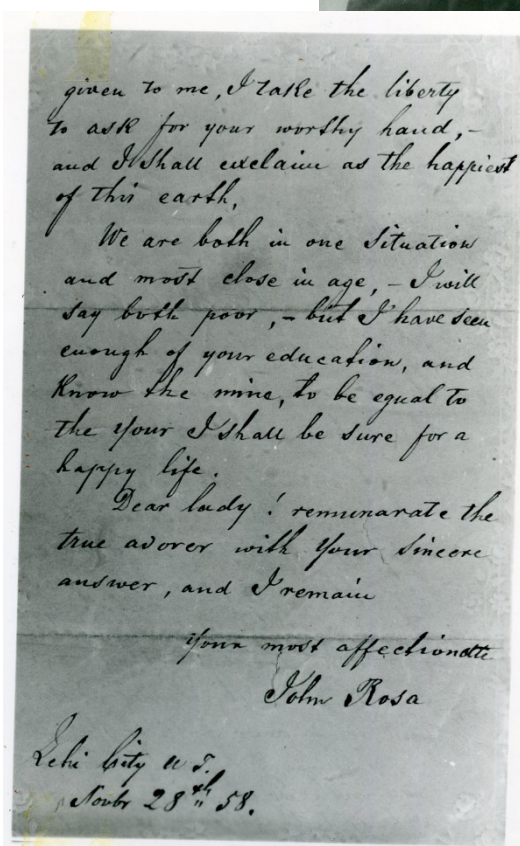 given to me, I take the liberty
to ask for your worthy hand, –
and I shall exclaim as the happiest
of this earth,
We are both in one Situation
and most close in age, – I will
say both poor, – but I have seen
enough of your education, and
Know the mine, to be equal to
the your I shall be sure for a
happy life.
Dear lady! remunarate the
true adorer with your sincere
answer, and I remain
Your most affectionate
John Rosa
Lehi City U T.
Novbr 28th 58.